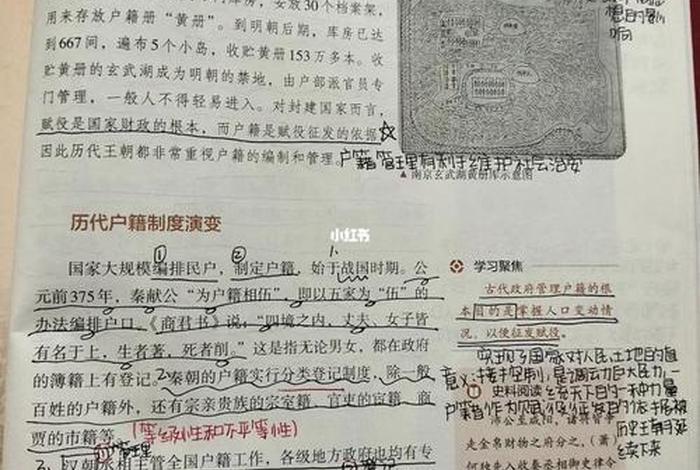 用来存放户籍册“黄册”。到明朝后期,库房已达
到667间,遍布5个小岛,收贮黄册153万多本。收
贮黄册的玄武湖成为明朝的禁地,由户部派官员专
门管理,一般人不得轻易进入。对封建国家而言,
赋役是国家财政的根本,而户籍是赋役征发的依据☆
因此历代王朝都非常重视户籍的编制和管理。户籍管理有利于维护社会治安
▲南京玄武湖黄册库示意图
响
历代户籍制度演变
小红书
① ②
国家大规模编排民户,制定户籍,始于战国时期。公
元前375年,秦献公“为户籍相伍”,即以五家为“伍”的
办法编排户口。《商君书》说:“四境之内,丈夫、女子皆
有名于上,生者著,死者削。”这是指无论男女,都在政府
的簿籍上有登记。2.秦朝的户籍实行分类登记制度,除一般
百姓的户籍外,还有宗亲贵族的宗室籍、官吏的宦籍、商
贾的市籍等。(等级性和不平等性)
管理
3.汉朝丞相主管全国户籍工作,各级地方政府也均有专
学习聚焦
古代政府管理户籍的根
本目的是掌握人口变动情
况,以便征发赋役。
实现了国家对人民土地的直
意义:接控制,是调动百大民力
史料阅读 统治天下的一种力量
历史朝延
续下来
沛公至咸阳,诸将皆争
走金帛财物之府分之,(萧)
何独先入收秦丞相御史律令